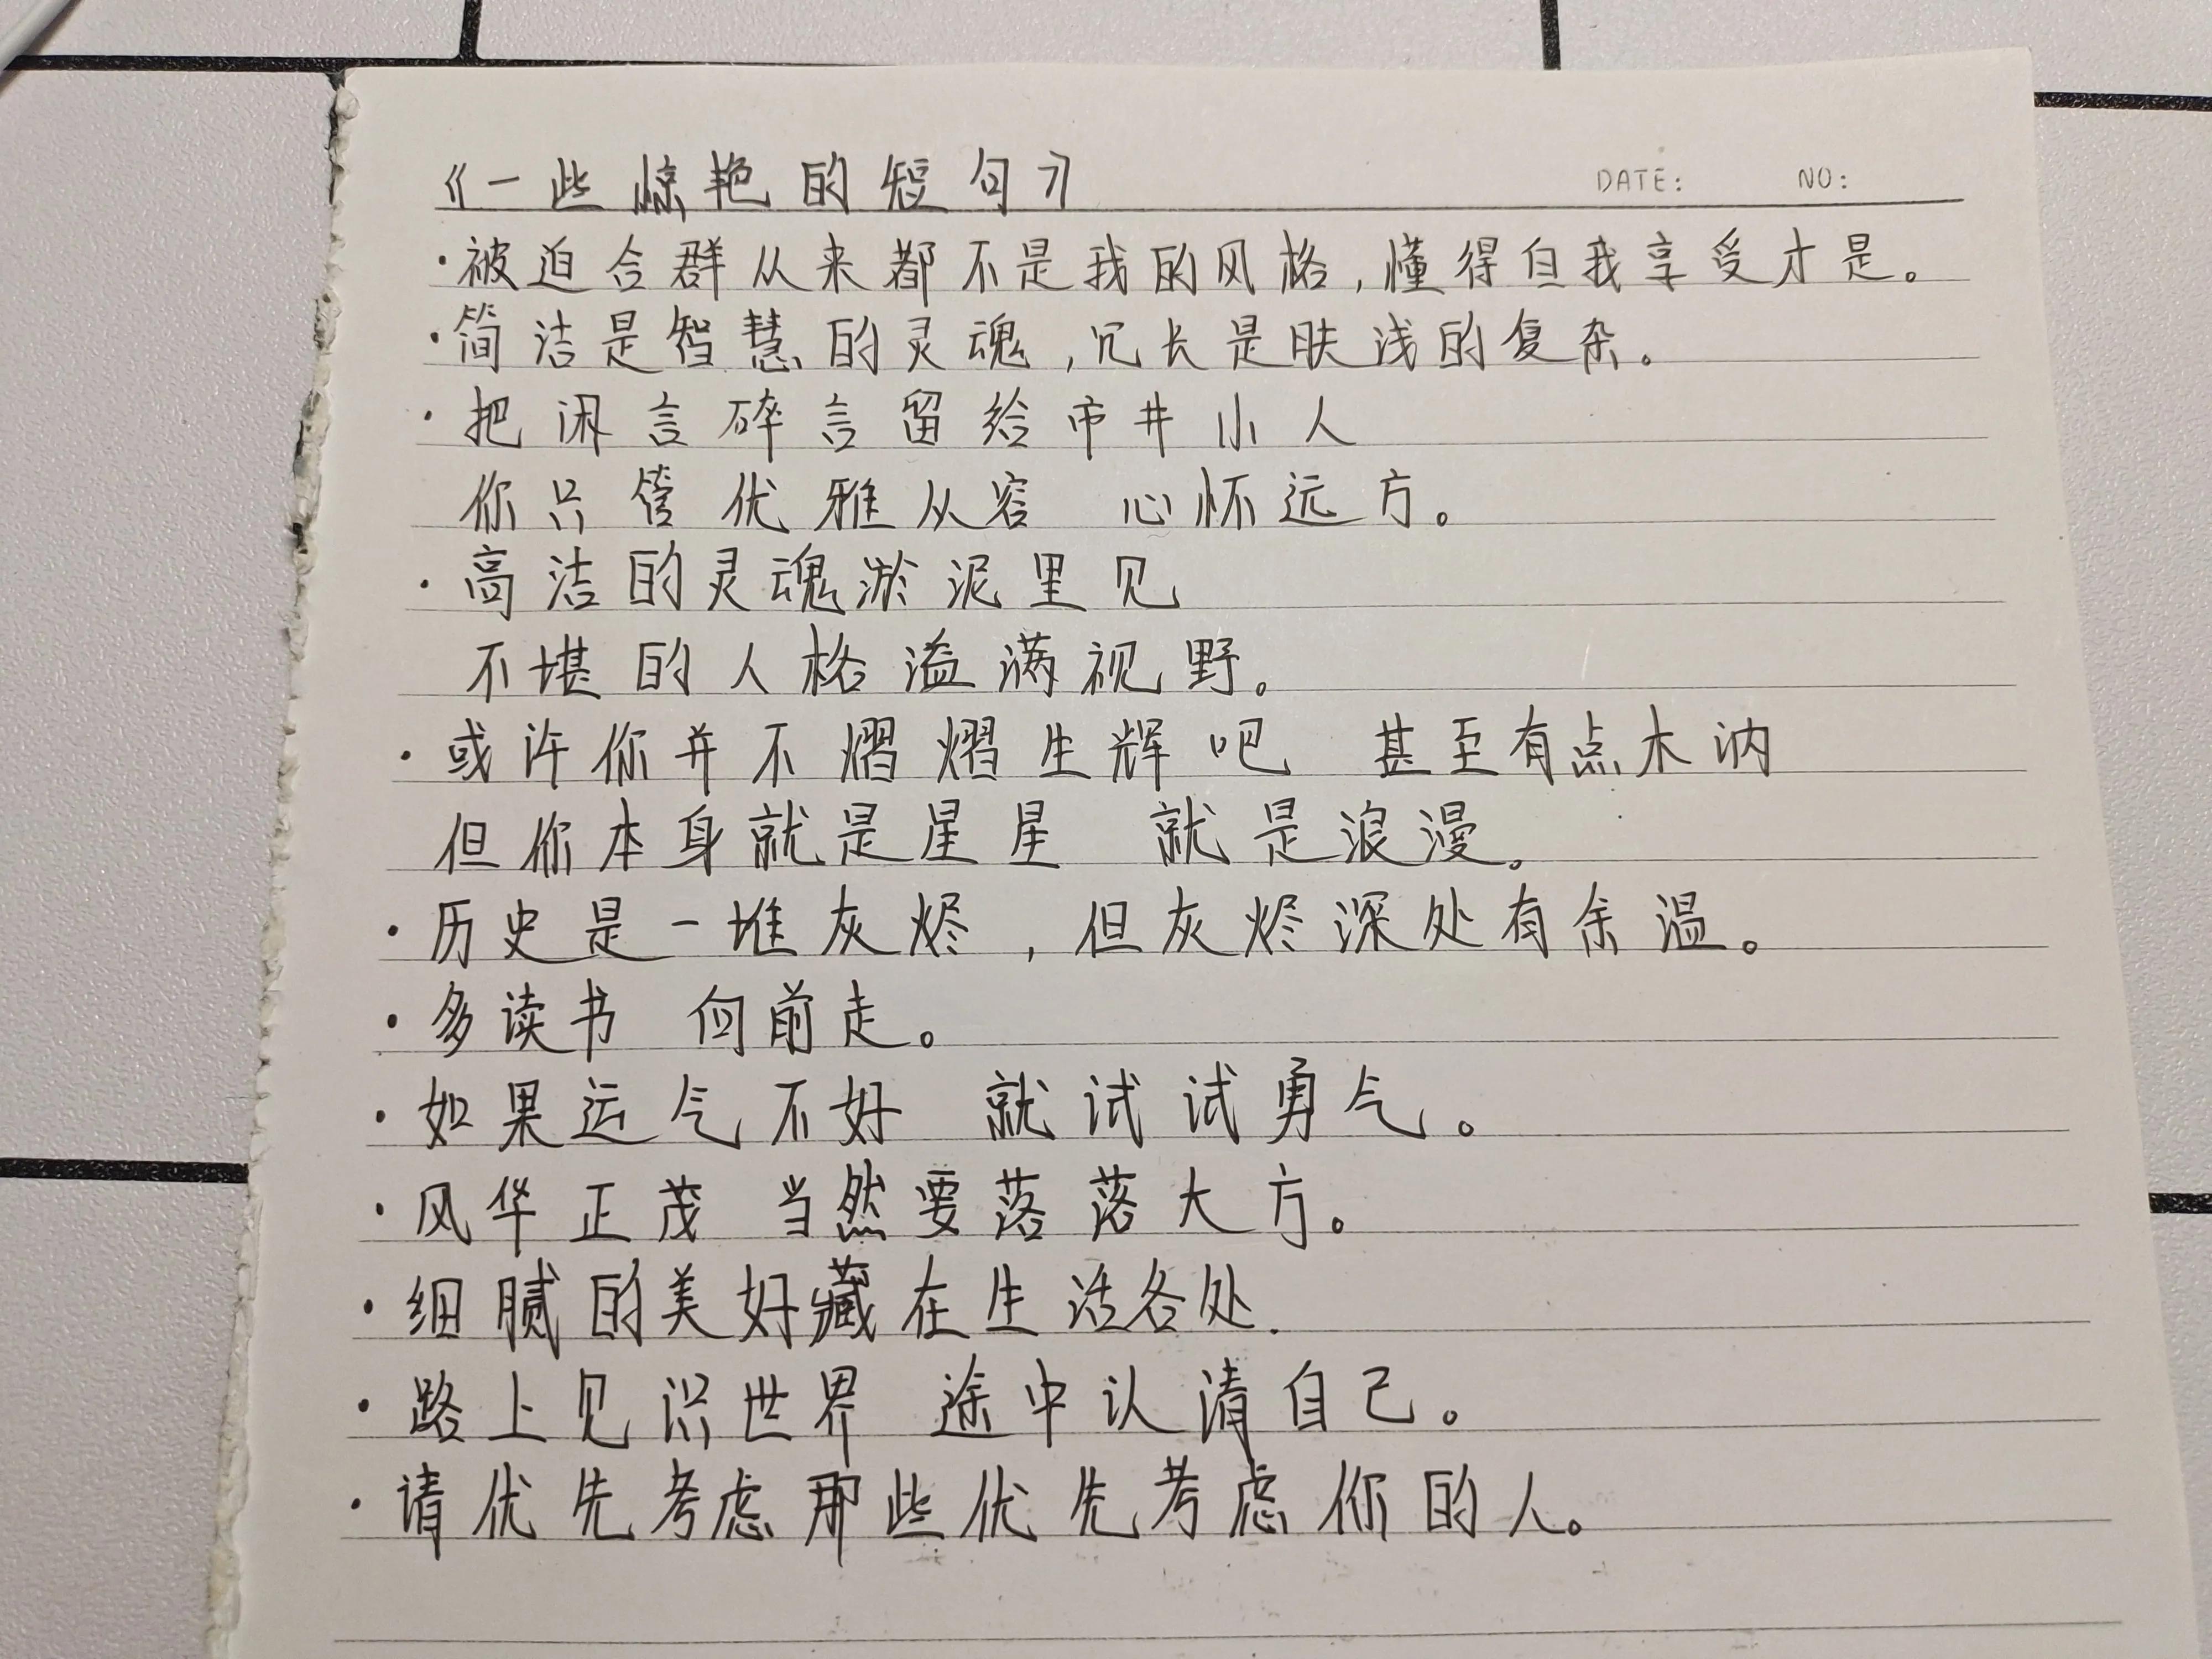 《一些惊艳的短句》 DATE: NO:
·被迫合群从来都不是我的风格,懂得自我享受才是。
·简洁是智慧的灵魂,冗长是肤浅的复杂。
·把闲言碎言留给市井小人
你只管优雅从容 心怀远方。
·高洁的灵魂淤泥里见
不堪的人格溢满视野。
·或许你并不熠熠生辉吧 甚至有点木讷
但你本身就是星星 就是浪漫。
·历史是一堆灰烬,但灰烬深处有余温。
·多读书 向前走。
·如果运气不好 就试试勇气。
·风华正茂 当然要落落大方。
·细腻的美好藏在生活各处.
·路上见识世界 途中认清自己。
·请优先考虑那些优先考虑你的人。